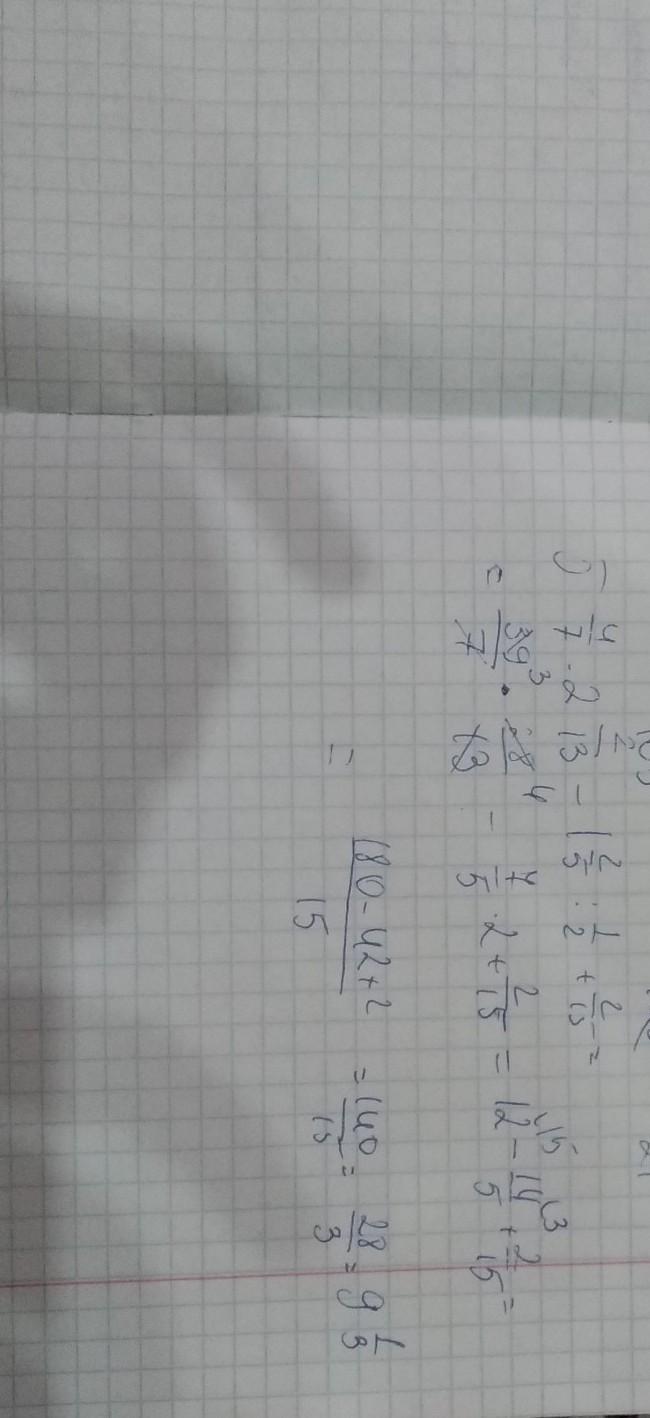 5 4/7 · 2 2/13 - 1 2/5 : 1/2 + 2/15 =
= 39/7 ³ · 28/13 ⁴ - 7/5 · 2 + 2/15 = 12 \15 - 14/5 \3 + 2/15 =
= 180-42+2/15 = 140/15 = 28/3 = 9 1/3